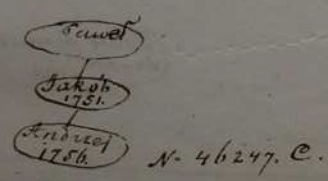 Paweł
Jakób
1751.
Andrzej
1756.
N. 46247. C.